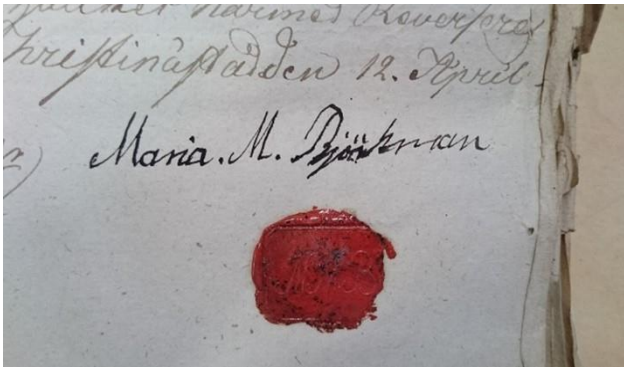 härmed Reverserer
Christinæstadden 12. April
Maria. M. Björkman